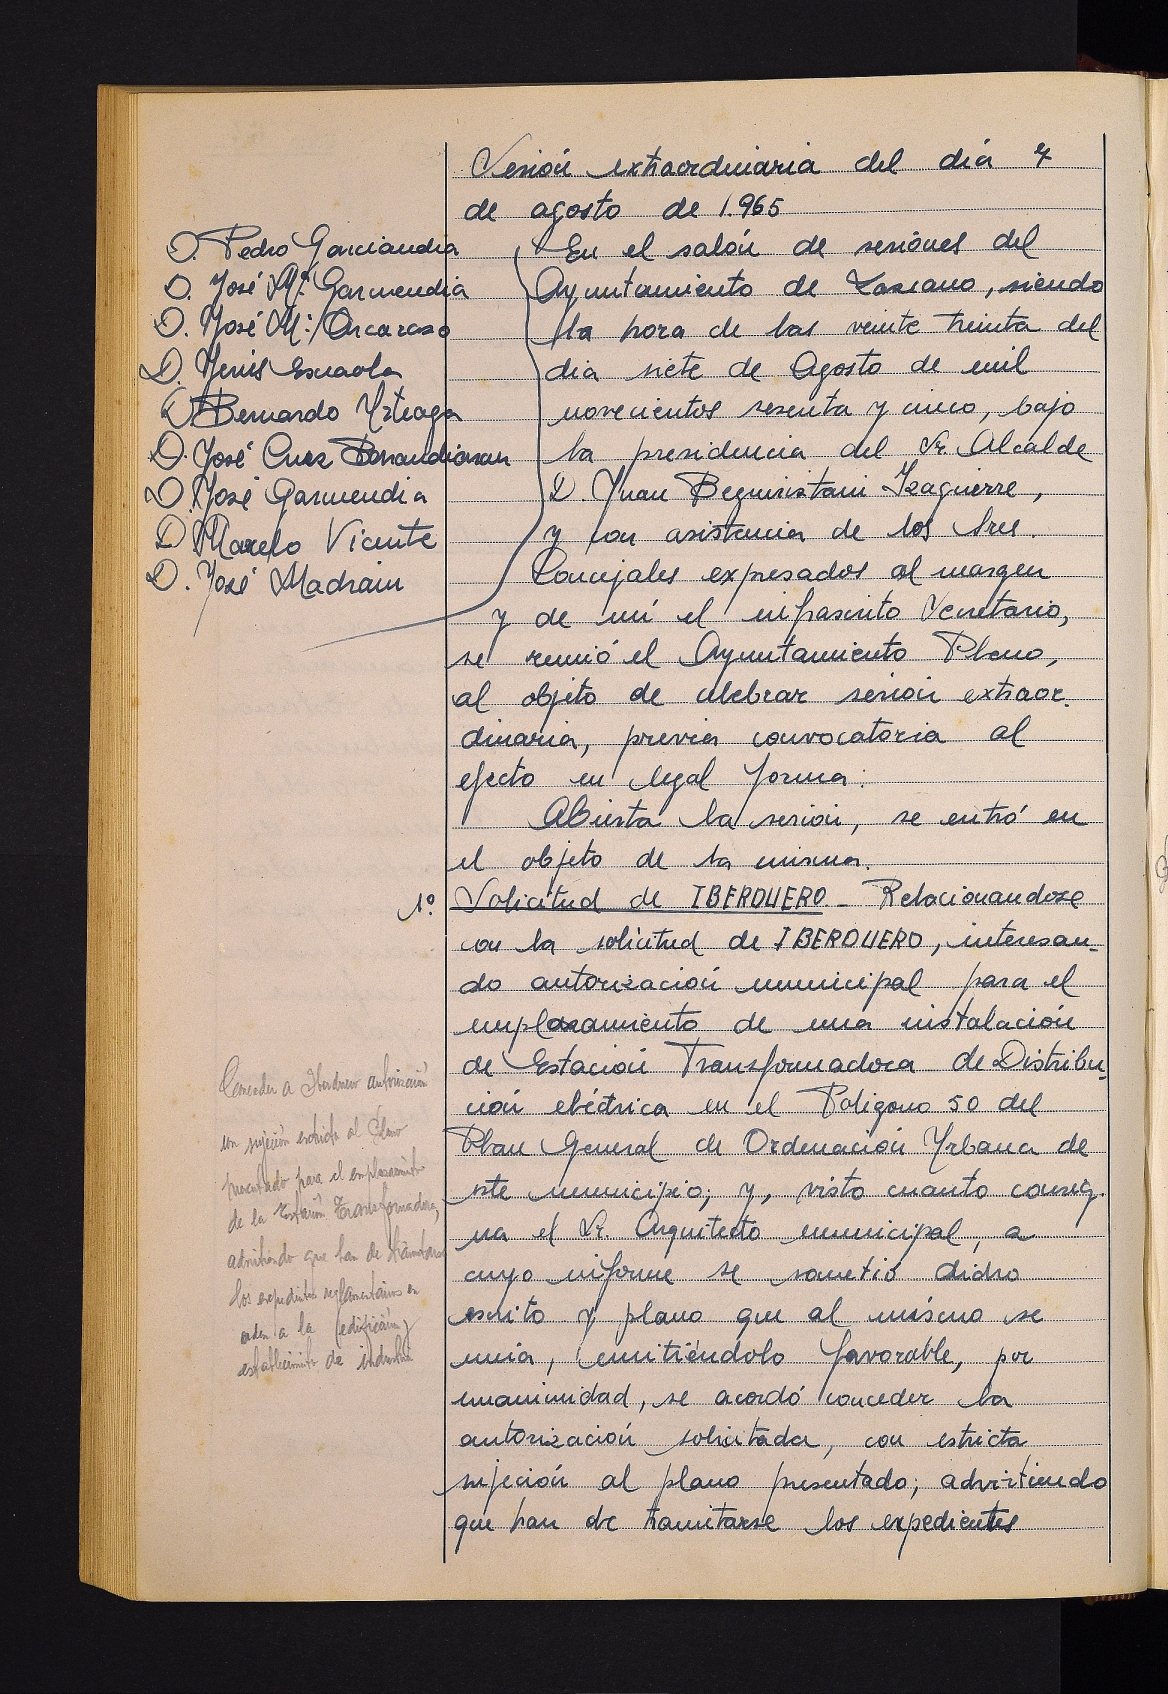 Sesión extraordinaria del día 7
de agosto de 1.965
D. Pedro Garciandia
D. José Mª Garmendia
D. José Mª Orcaraso
D. Jesús Esnaola
D. Bernardo Urteaga
D. José Cruz Barandiaran
D. José Garmendia
D. Marcelo Vicente
D. José Madrain
En el salón de sesiones del
Ayuntamiento de Lazcano, siendo
la hora de las veinte treinta del
dia siete de Agosto de mil
novecientos sesenta y cinco, bajo
la presidencia del Sr. Alcalde
D. Juan Beguiristain Izaguirre,
y con asistencia de los Sres.
Concejales expresados al margen
y de mí el infrascrito Secretario,
se reunió el Ayuntamiento Pleno,
al objeto de celebrar sesión extraor.
dinaria, previa convocatoria al
efecto en legal forma.
Abierta la sesión, se entró en
el objeto de la misma.
1º. Solicitud de IBERDUERO - Relacionandose
con la solicitud de IBERDUERO, interesan-
do autorización municipal para el
emplazamiento de una instalación
de Estación Transformadora de Distribu-
ción eléctrica en el Poligono 50 del
Plan General de Ordenación Urbana de
este municipio; y, visto cuanto consig-
na el Sr. Arquitecto municipal, a
cuyo informe se sometió dicho
escrito y plano que al mismo se
unia, emitiéndolo favorable, por
unanimidad, se acordó conceder la
autorización solicitada, con estricta
sujeción al plano presentado; advirtiendo
que han de tramitarse los expedientes
Conceder a Iberduero autorización
con sujeción estricta al plano
presentado para el emplazamiento
de la Estación Transformadora,
advirtiendo que han de tramitarse
los expedientes reglamentarios en
orden a la edificación y
establecimiento de industria